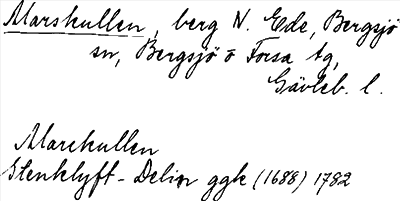 Marskullen, berg N. Ede, Bergsjö
sn, Bergsjö o Forsa tg,
Gävleb. l.
Marckullen
Stenklyft-Delin ggk (1688) 1782